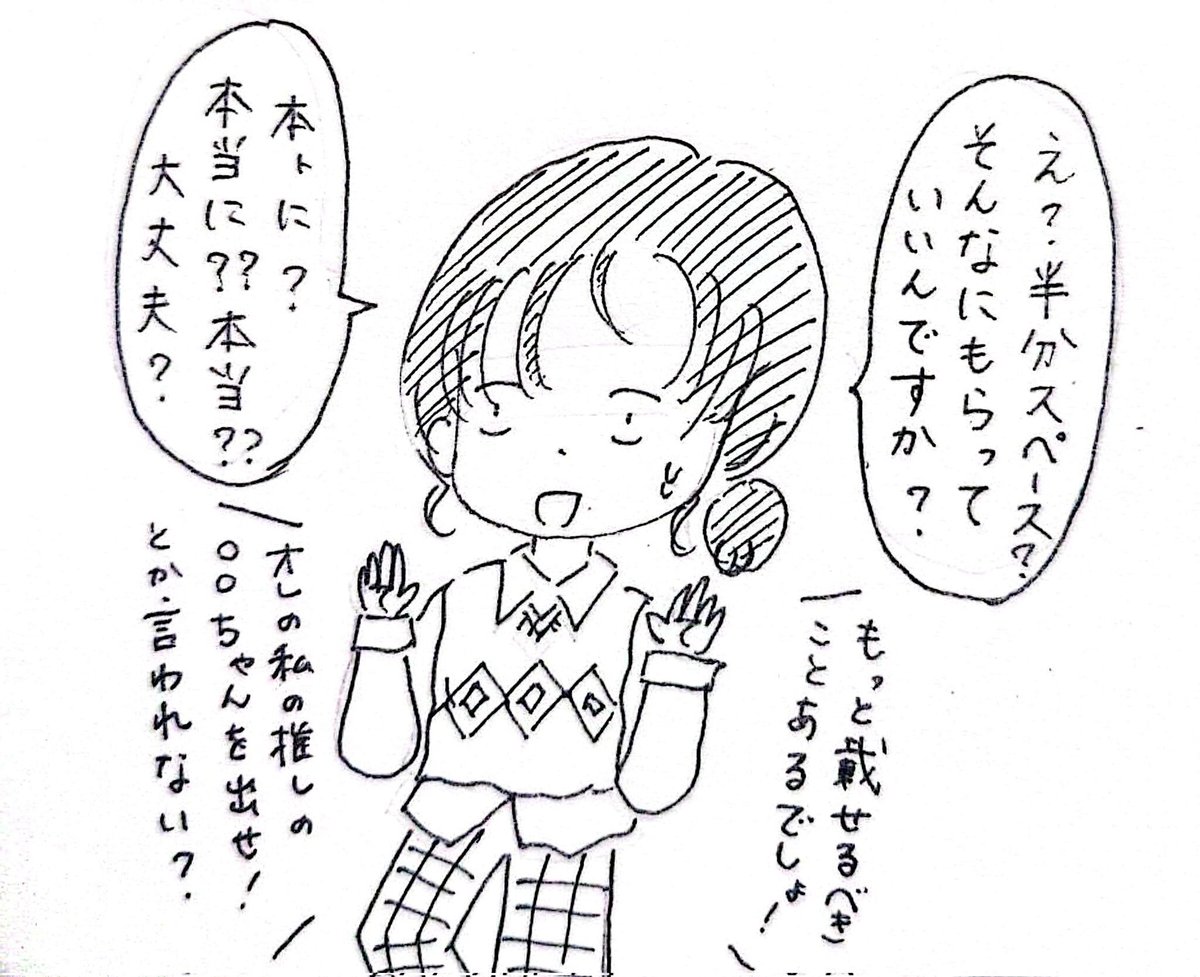 え?半分スペース?
そんなにもらって
いいんですか?
もっと載せるべき
ことあるでしょ!
本トに?
本当に??本当??
大丈夫?
オレの私の推しの
○○ちゃんを出せ!
とか言われない?